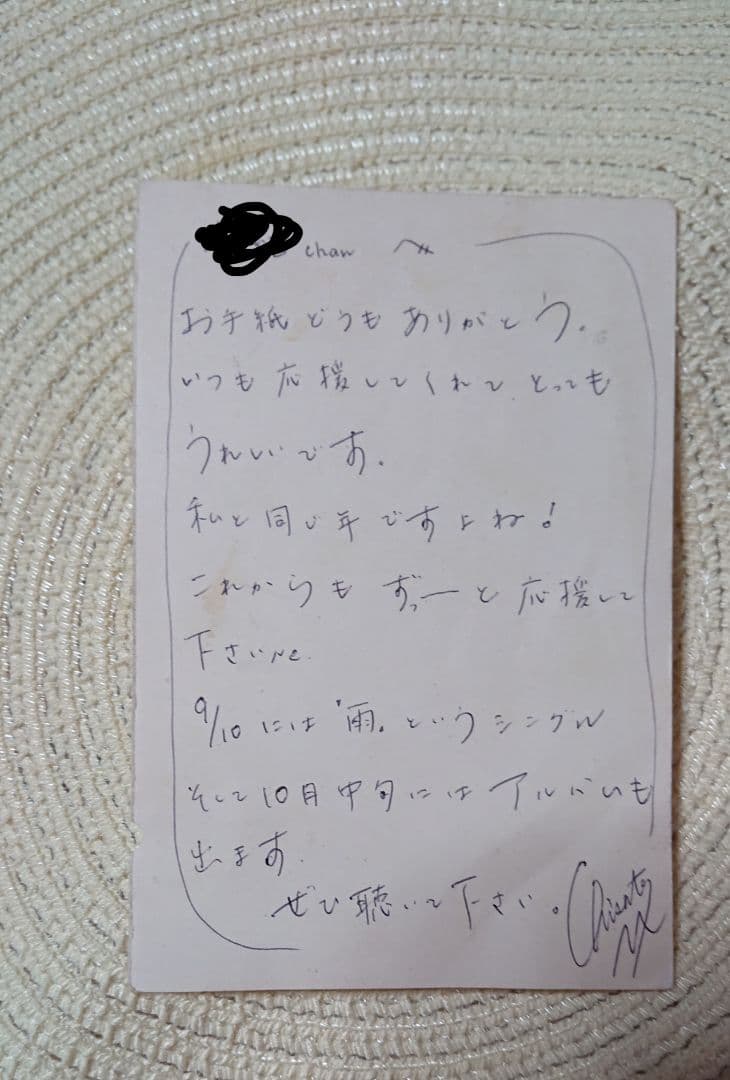 chan へ
お手紙どうもありがとう。
いつも応援してくれて、とっても
うれしいです。
私と同じ年ですよね!
これからも ずっーと応援して
下さいね。
9/10には「雨」というシングル
そして10月中旬にはアルバムも
出ます。
ぜひ聴いて下さい。
Chisato